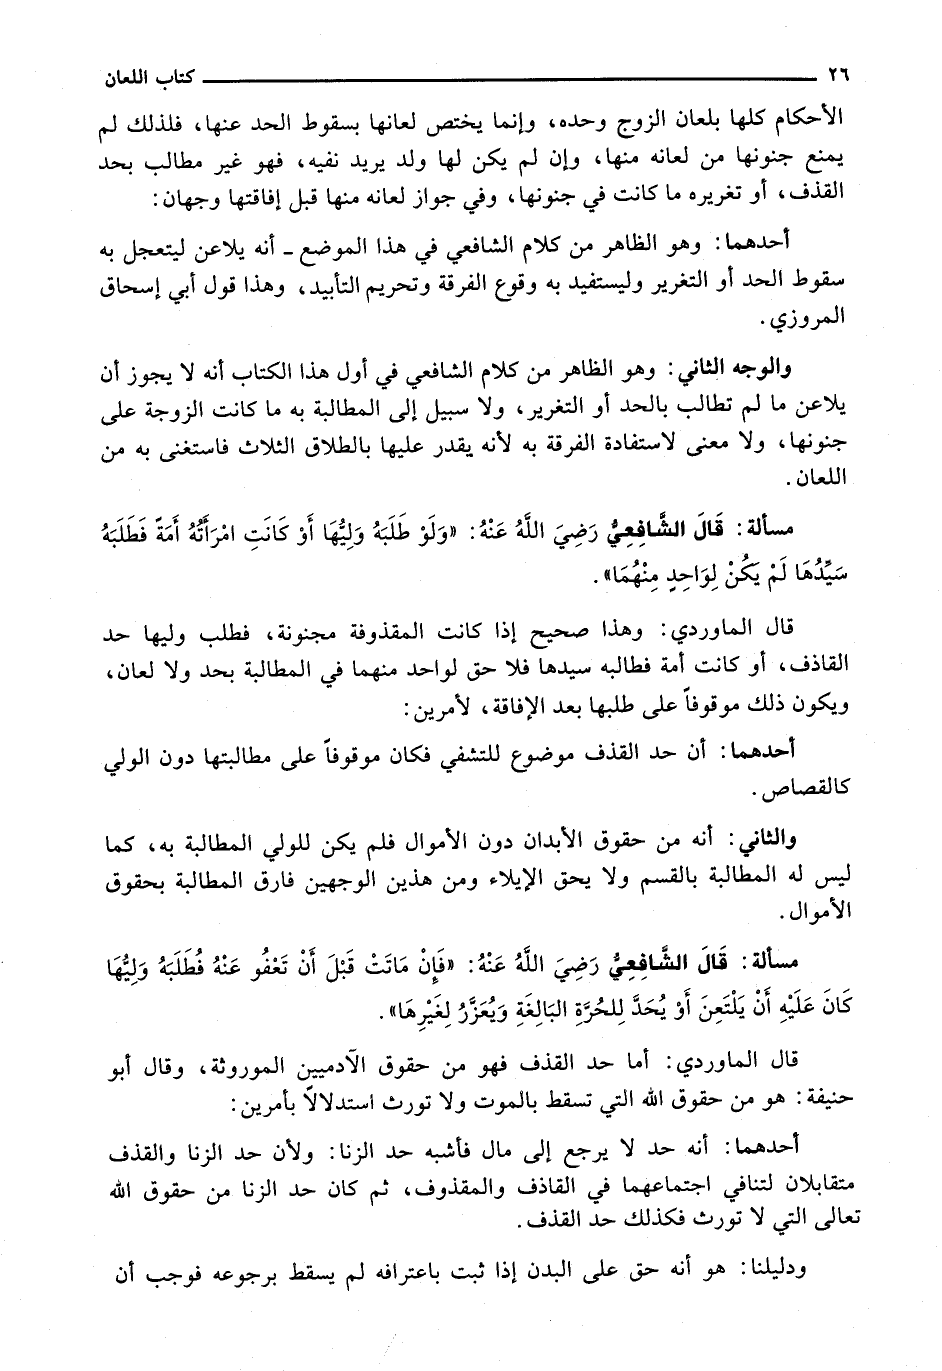 ٢٦ كتاب اللعان
الأحكام كلها بلعان الزوج وحده، وإنما يختص لعانها بسقوط الحد عنها، فلذلك لم
يمنع جنونها من لعانه منها، وإن لم يكن لها ولد يريد نفيه، فهو غير مطالب بحد
القذف، أو تغريره ما كانت في جنونها، وفي جواز لعانه منها قبل إفاقتها وجهان:
أحدهما: وهو الظاهر من كلام الشافعي في هذا الموضع ـ أنه يلاعن ليتعجل به
سقوط الحد أو التغرير وليستفيد به وقوع الفرقة وتحريم التأبيد، وهذا قول أبي إسحاق
المروزي.
والوجه الثاني: وهو الظاهر من كلام الشافعي في أول هذا الكتاب أنه لا يجوز أن
يلاعن ما لم تطالب بالحد أو التغرير، ولا سبيل إلى المطالبة به ما كانت الزوجة على
جنونها، ولا معنى لاستفادة الفرقة به لأنه يقدر عليها بالطلاق الثلاث فاستغنى به من
اللعان.
مسألة: قَالَ الشَّافِعِيُّ رَضِيَ اللَّهُ عَنْهُ: «وَلَوْ طَلَبَهُ وَلِيُّهَا أَوْ كَانَتِ امْرَأَتُهُ أَمَةً فَطَلَبَهُ
سَيِّدُهَا لَمْ يَكُنْ لِوَاحِدٍ مِنْهُمَا».
قال الماوردي: وهذا صحيح إذا كانت المقذوفة مجنونة، فطلب وليها حد
القاذف، أو كانت أمة فطالبه سيدها فلا حق لواحد منهما في المطالبة بحد ولا لعان،
ويكون ذلك موقوفاً على طلبها بعد الإفاقة، لأمرين:
أحدهما: أن حد القذف موضوع للتشفي فكان موقوفاً على مطالبتها دون الولي
كالقصاص.
والثاني: أنه من حقوق الأبدان دون الأموال فلم يكن للولي المطالبة به، كما
ليس له المطالبة بالقسم ولا يحق الإيلاء ومن هذين الوجهين فارق المطالبة بحقوق
الأموال.
مسألة: قَالَ الشَّافِعِيُّ رَضِيَ اللَّهُ عَنْهُ: «فَإِنْ مَاتَتْ قَبْلَ أَنْ تَعْفُو عَنْهُ فُطَلَبَهُ وَلِيُّهَا
كَانَ عَلَيْهِ أَنْ يَلْتَعِنَ أَوْ يُحَدَّ لِلحُرَّةِ البَالِغَةِ وَيُعَزَّرُ لِغَيْرِهَا».
قال الماوردي: أما حد القذف فهو من حقوق الآدميين الموروثة، وقال أبو
حنيفة: هو من حقوق الله التي تسقط بالموت ولا تورث استدلالاً بأمرين:
أحدهما: أنه حد لا يرجع إلى مال فأشبه حد الزنا: ولأن حد الزنا والقذف
متقابلان لتنافي اجتماعهما في القاذف والمقذوف، ثم كان حد الزنا من حقوق الله
تعالى التي لا تورث فكذلك حد القذف.
ودليلنا: هو أنه حق على البدن إذا ثبت باعترافه لم يسقط برجوعه فوجب أن